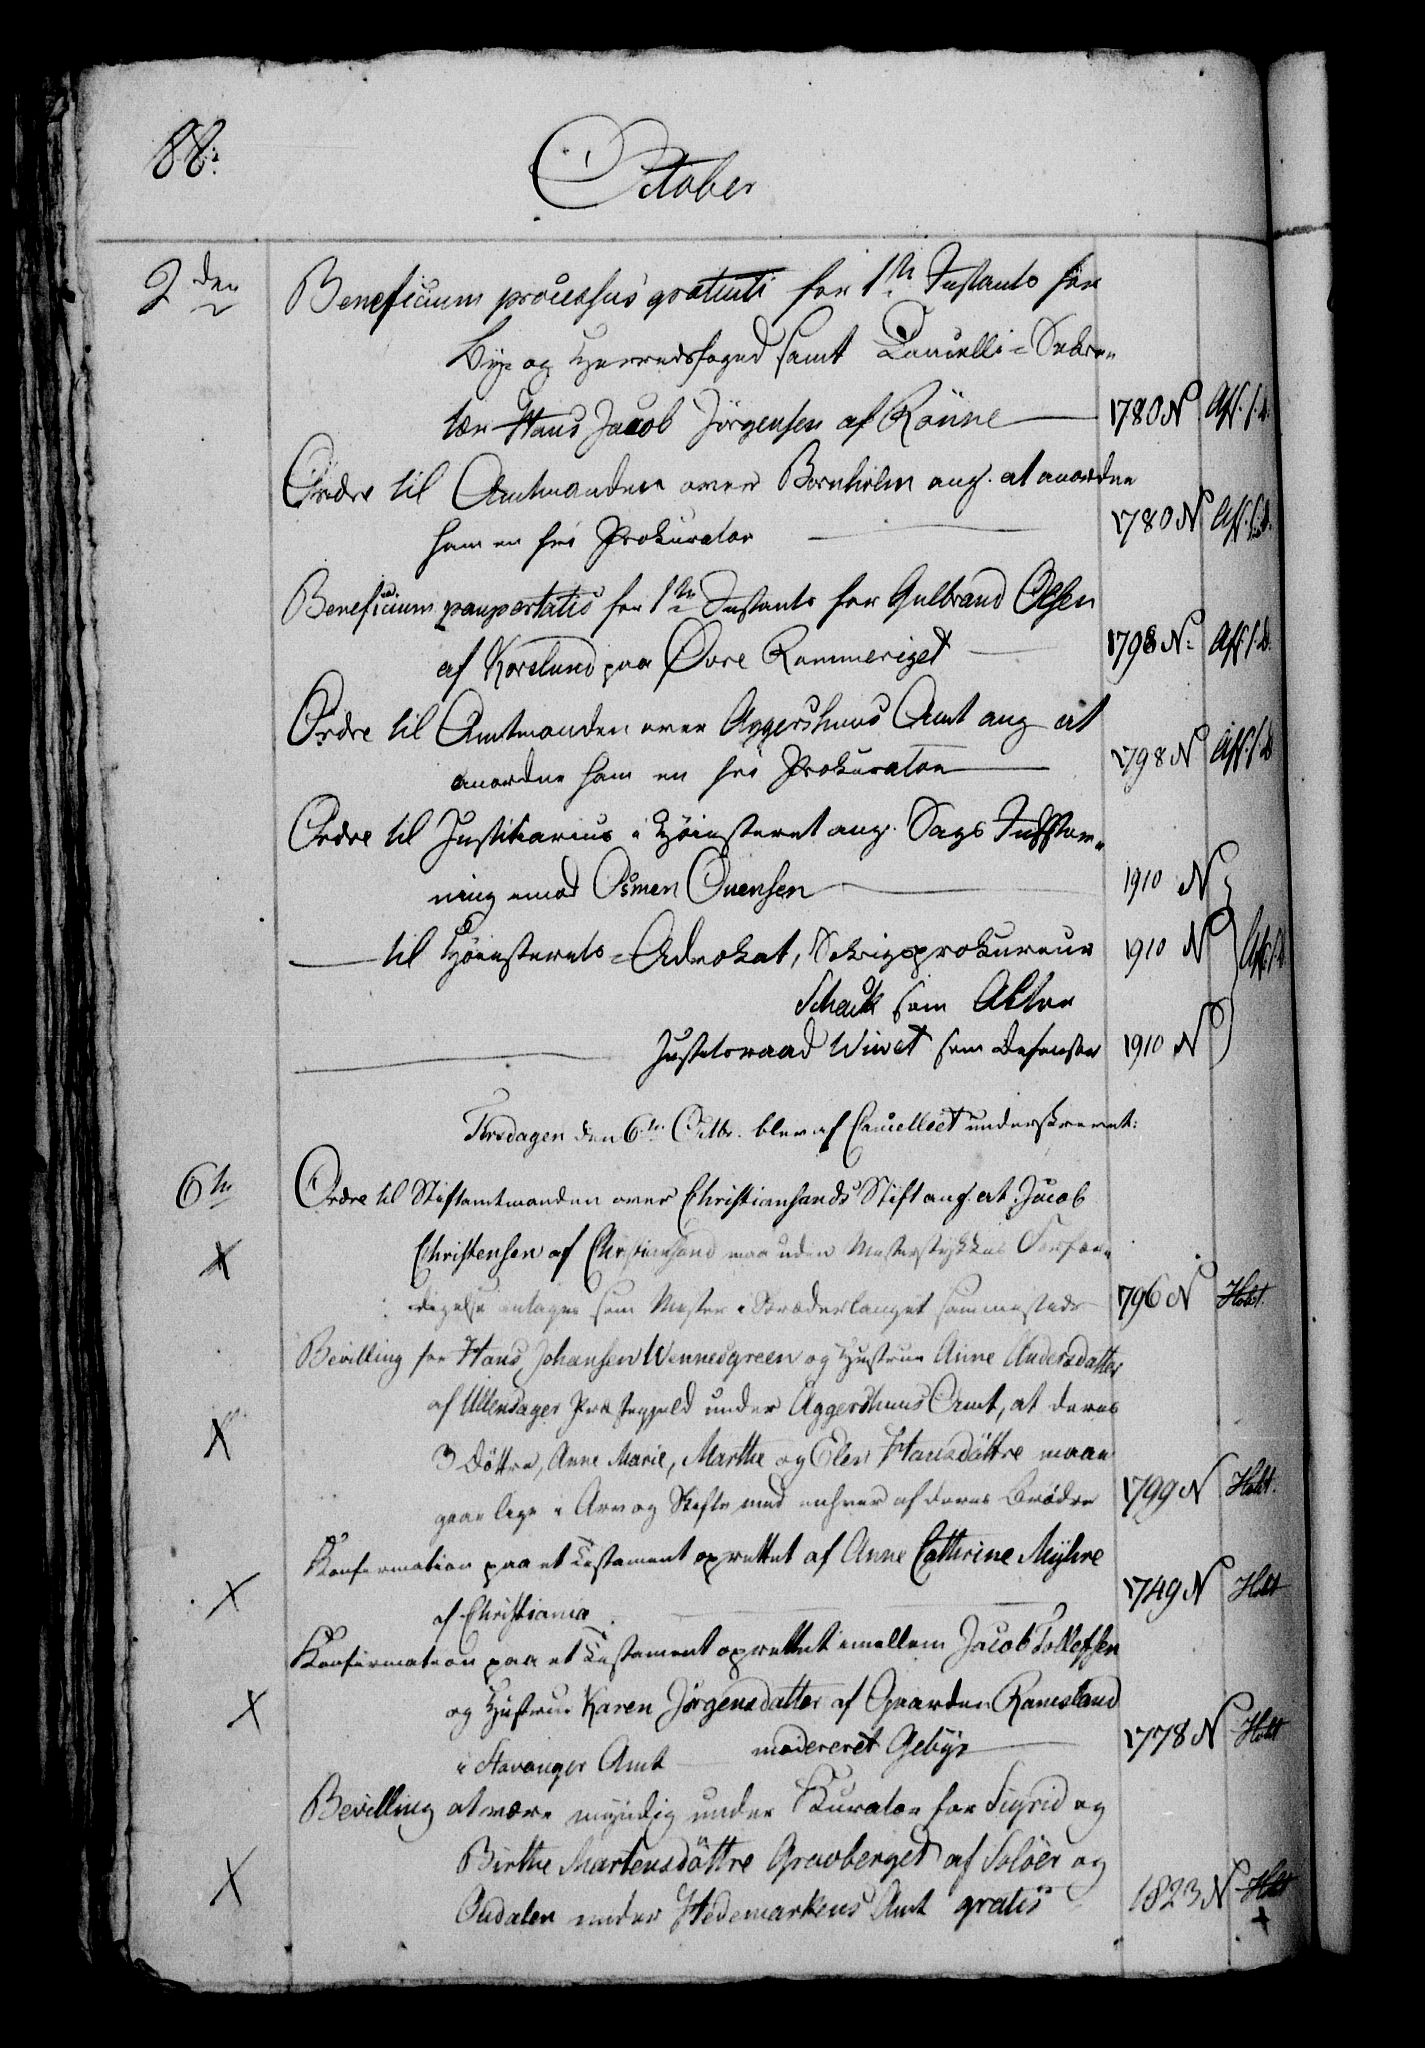 88:
October
2den Beneficium processus gratuiti for 1ste Instants for
By- og Herredsfoged samt Cancelli-Sekre-
tær Hans Jacob Jörgensen af Rönne 1780 N Aff. s.D.
Ordre til Amtmanden over Bornholm ang. at anordne
ham en fri Prokurator 1780 N Aff. s.D.
Beneficium paupertatis for 1ste Instants for Gulbrand Olsen
af Korslund paa Øvre Rommeriget 1798 N. Aff. s.D.
Ordre til Amtmanden over Aggershuus Amt ang at
anordne ham en fri Prokurator 1798 N Aff. s.D
Ordre til Justitiarius i Høiesteret ang. Sags Indstæv-
ning imod Osmen Evensen 1910 N
til Høiesterets-Advokat, Krigsprokureur 1910 N Aff. s.D.
Schack som Aktor
Justitsraad Wivet som Defensor 1910 N
Tirsdagen den 6te Octbr. blev af Cancelliet underskrevet:
6te Ordre til Stiftamtmanden over Christiansands Stift ang. at Jacob
Christensen af Christiansand maa uden Mesterstykkes Forfær-
digelse antages som Mester i Skræderlauget sammesteds 796 N Holst.
Bevilling for Hans Johansen Wennesgreen og Hustrue Anne Andersdatter
af Ullensager Præstegjeld under Aggershuus Amt, at deres
3 Döttre, Anne Marie, Marthe og Elen Hansdöttre maae
gaae lige i Arv og Skifte med enhver af deres Brödre 1799 N Holst.
Konfirmation paa et Testament oprettet af Anne Cathrine Myhre
af Christiania 1749 N Holst
Konfirmation paa et Testament oprettet imellem Jacob Tollefsen
og Hustrue Karen Jörgensdatter af Gaarden Ramsland
i Stavanger Amt modereret Gebyr 1778 N Holst
Bevilling at være myndig under Kurator for Sigrid og
Birthe Martensdöttre Gravberget af Solöer og
Oudalen under Hedemarkens Amt gratis 1823 N Holst